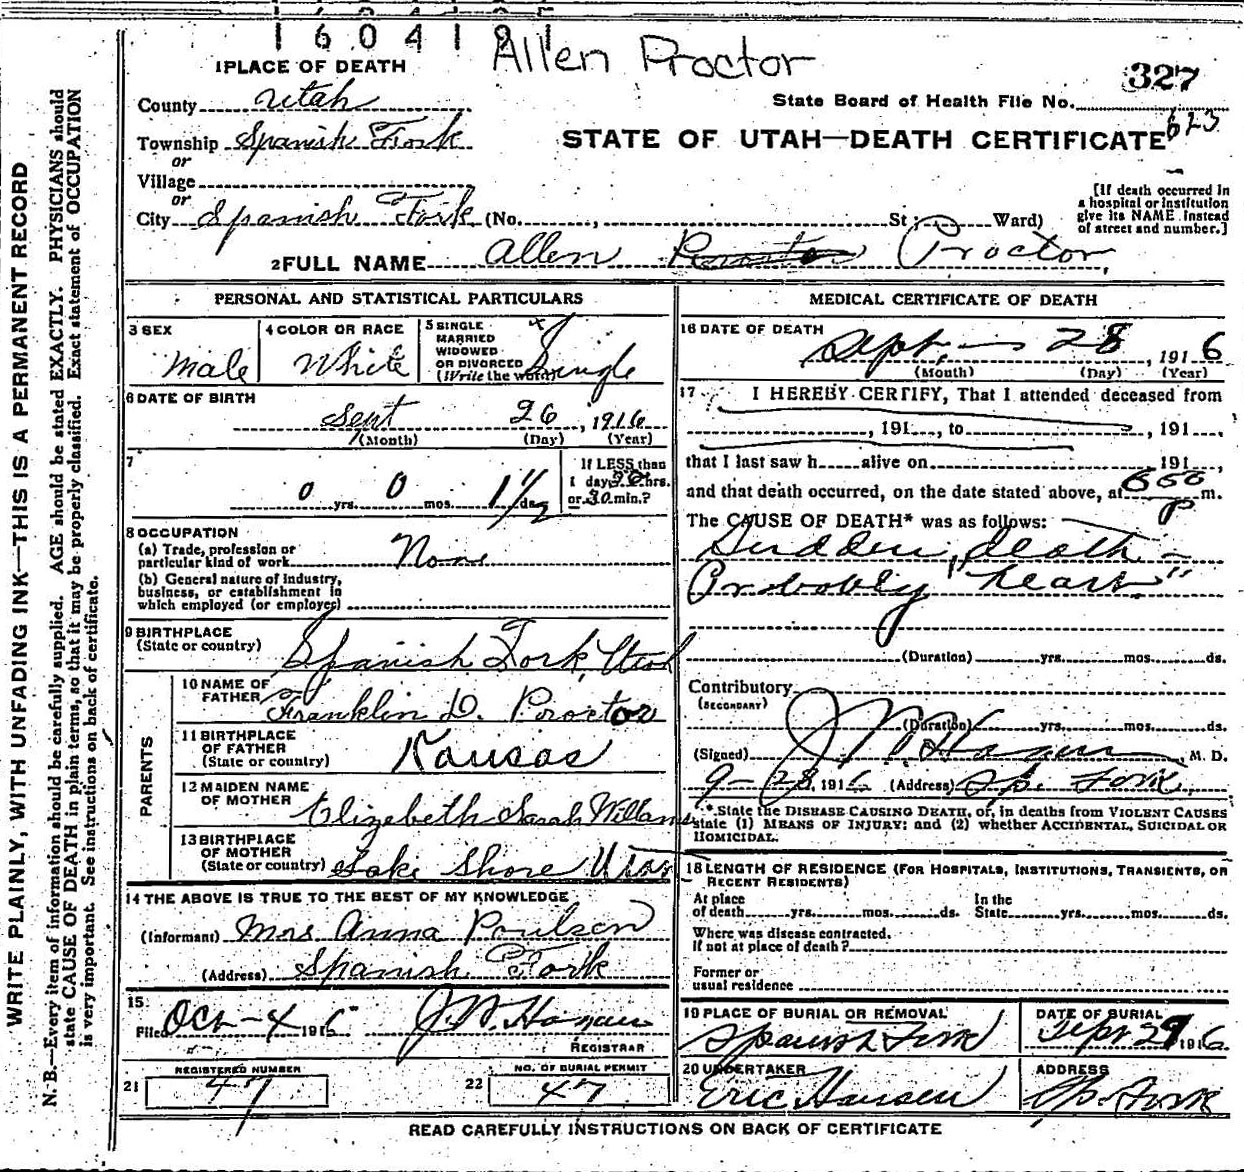 1604191
Allen Proctor
327
1 PLACE OF DEATH
County Utah
State Board of Health File No.
623
Township Spanish Fork
STATE OF UTAH—DEATH CERTIFICATE
or
Village
or
City Spanish Fork (No. , St ; Ward)
[If death occurred in
a hospital or institution
give its NAME instead
of street and number.]
2 FULL NAME Allen Proctor
PERSONAL AND STATISTICAL PARTICULARS
3 SEX
male
4 COLOR OR RACE
White
5 SINGLE
MARRIED
WIDOWED
OR DIVORCED
(Write the word)
Single
6 DATE OF BIRTH
Sept 26, 1916
(Month) (Day) (Year)
7
0 yrs. 0 mos. 1 1/2 ds.
If LESS than
1 day hrs.
or 30 min.?
8 OCCUPATION
(a) Trade, profession or
particular kind of work None
(b) General nature of industry,
business, or establishment in
which employed (or employer)
9 BIRTHPLACE
(State or country)
Spanish Fork, Utah
PARENTS
10 NAME OF
FATHER
Franklin D. Proctor
11 BIRTHPLACE
OF FATHER
(State or country)
Kansas
12 MAIDEN NAME
OF MOTHER
Elizebeth Sarah Williams
13 BIRTHPLACE
OF MOTHER
(State or country)
Lake Shore Utah
14 THE ABOVE IS TRUE TO THE BEST OF MY KNOWLEDGE
(Informant) Mrs Anna Poulsen
(Address) Spanish Fork
15
Filed Oct-4 1916 J. W. Hagan
REGISTRAR
21
REGISTERED NUMBER
47
22
NO. OF BURIAL PERMIT
47
MEDICAL CERTIFICATE OF DEATH
16 DATE OF DEATH
Sept. 28, 1916
(Month) (Day) (Year)
17 I HEREBY CERTIFY, That I attended deceased from
, 191 , to , 191 ,
that I last saw h alive on 191 ,
and that death occurred, on the date stated above, at 650 P m.
The CAUSE OF DEATH* was as follows:
Sudden death -
Probably "heart"
(Duration) yrs. mos. ds.
Contributory
(SECONDARY)
(Duration) yrs. mos. ds.
(Signed) J. W. Hagan M. D.
9-28, 1916 (Address) Sp. Fork.
* State the DISEASE CAUSING DEATH, or, in deaths from VIOLENT CAUSES
state (1) MEANS OF INJURY; and (2) whether ACCIDENTAL, SUICIDAL OR
HOMICIDAL.
18 LENGTH OF RESIDENCE (FOR HOSPITALS, INSTITUTIONS, TRANSIENTS, OR
RECENT RESIDENTS)
At place
of death yrs. mos. ds.
In the
State yrs. mos. ds.
Where was disease contracted.
If not at place of death?
Former or
usual residence
19 PLACE OF BURIAL OR REMOVAL
Spanish Fork
DATE OF BURIAL
Sept 29 1916
20 UNDERTAKER
Eric Hansen
ADDRESS
Sp. Fork
READ CAREFULLY INSTRUCTIONS ON BACK OF CERTIFICATE
WRITE PLAINLY, WITH UNFADING INK—THIS IS A PERMANENT RECORD
N. B.—Every item of information should be carefully supplied. AGE should be stated EXACTLY. PHYSICIANS should
state CAUSE OF DEATH in plain terms, so that it may be properly classified. Exact statement of OCCUPATION
is very important. See instructions on back of certificate.